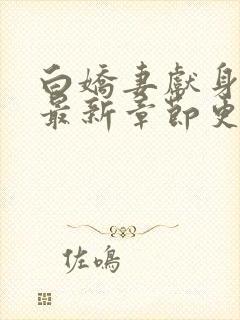 白嬌妻獻身
最新章節史
佐鳴